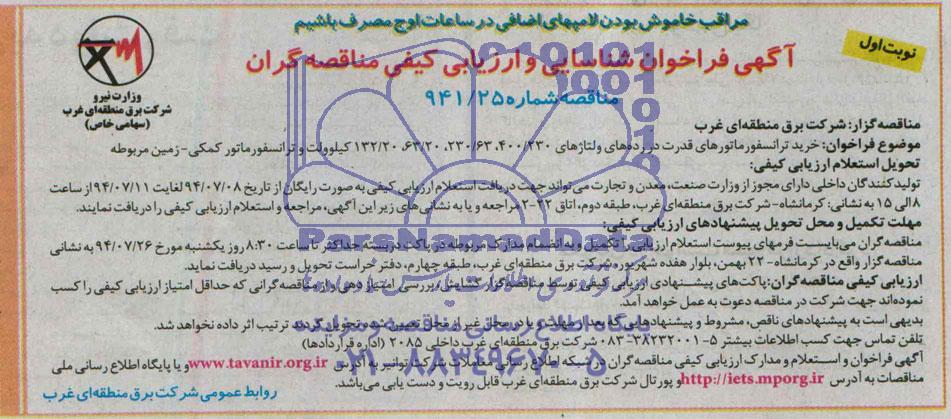 مراقب خاموش بودن لامپهای اضافی در ساعات اوج مصرف باشیم
نوبت اول
آگهی فراخوان شناسایی و ارزیابی کیفی مناقصه گران
مناقصه شماره ۹۴۱/۲۵
وزارت نیرو
شرکت برق منطقه‌ای غرب
(سهامی خاص)
مناقصه گزار: شرکت برق منطقه‌ای غرب
موضوع فراخوان: خرید ترانسفورماتورهای قدرت در رده‌های ولتاژهای ۴۰۰/۲۳۰، ۲۳۰/۶۳، ۶۳/۲۰، ۱۳۲/۲۰ کیلوولت و ترانسفورماتور کمکی-زمین مربوطه
تحویل استعلام ارزیابی کیفی:
تولیدکنندگان داخلی دارای مجوز از وزارت صنعت، معدن و تجارت می‌تواند جهت دریافت استعلام ارزیابی کیفی به صورت رایگان از تاریخ ۹۴/۰۷/۰۸ لغایت ۹۴/۰۷/۱۱ از ساعت
۸ الی ۱۵ به نشانی: کرمانشاه-شرکت برق منطقه‌ای غرب، طبقه دوم، اتاق ۲۲-۲ مراجعه و یا به نشانی‌های زیر این آگهی، مراجعه و استعلام ارزیابی کیفی را دریافت نمایند.
مهلت تکمیل و محل تحویل پیشنهادهای ارزیابی کیفی:
مناقصه گران می‌بایست فرمهای پیوست استعلام ارزیابی را تکمیل و به انضمام مدارک مربوطه در پاکت دربسته حداکثر تا ساعت ۸:۳۰ روز یکشنبه مورخ ۹۴/۰۷/۲۶ به نشانی
مناقصه گزار واقع در کرمانشاه-۲۲ بهمن، بلوار هفده شهریور، شرکت برق منطقه‌ای غرب، طبقه چهارم، دفتر حراست تحویل و رسید دریافت نماید.
ارزیابی کیفی مناقصه گران: پاکت‌های پیشنهادی ارزیابی کیفی توسط مناقصه گزار گشایش، بررسی، امتیاز دهی و از مناقصه گرانی که حداقل امتیاز ارزیابی کیفی را کسب
نموده‌اند جهت شرکت در مناقصه دعوت به عمل خواهد آمد.
بدیهی است به پیشنهادهای ناقص، مشروط و پیشنهادهایی که بعد از مهلت و یا در محل غیر از محل تعیین شده تحویل گردند ترتیب اثر داده نخواهد شد.
تلفن تماس جهت کسب اطلاعات بیشتر ۵-۳۸۲۳۲۰۰۱-۰۸۳ شرکت برق منطقه‌ای غرب داخلی ۲۰۸۵ (اداره قراردادها)
آگهی فراخوان و استعلام و مدارک ارزیابی کیفی مناقصه گران در شبکه اطلاع رسانی معاملات شرکت توانیر به آدرس www.tavanir.org.ir و یا پایگاه اطلاع رسانی ملی
مناقصات به آدرس http://iets.mporg.ir و پورتال شرکت برق منطقه‌ای غرب قابل رویت و دست یابی می‌باشد.
روابط عمومی شرکت برق منطقه‌ای غرب
ParsNamadData
پایگاه اطلاع رسانی مناقصه و مزایده
۰۲۱-۸۸۳۴۹۶۷۰-۵